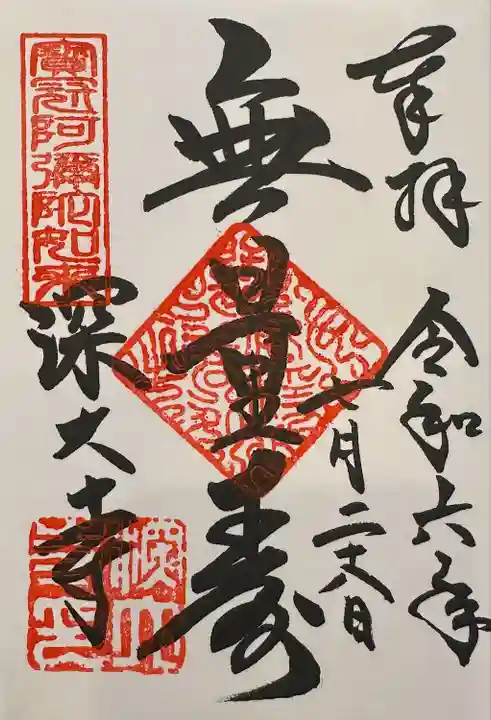 奉拝
令和六年
七月二十八日
無量寿
寶冠阿彌陀如来
深大寺